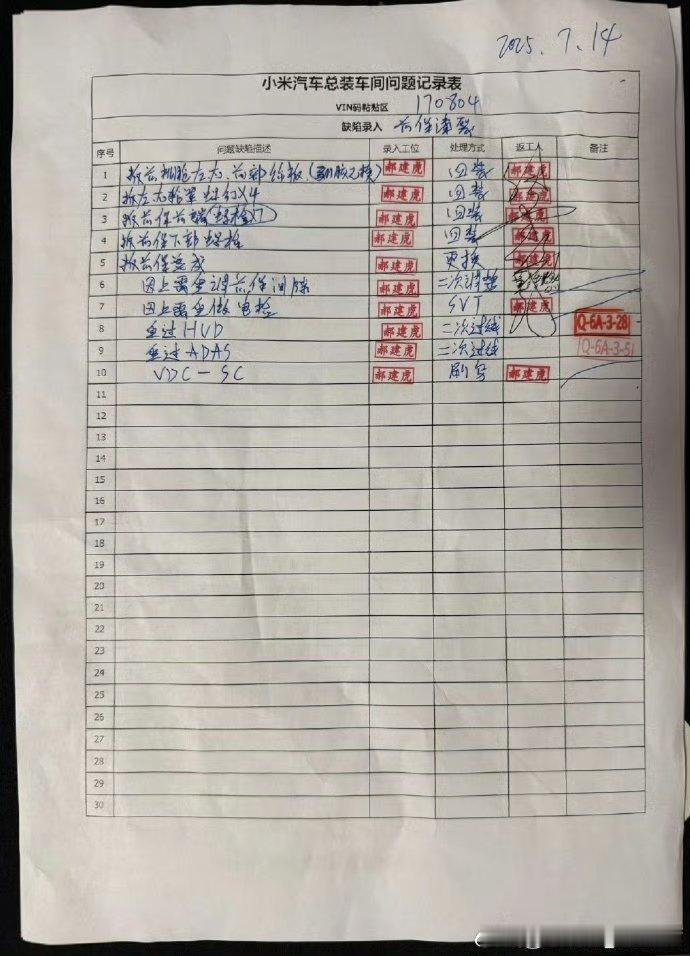 2025.7.14
小米汽车总装车间问题记录表
VIN码粘贴区 170804
缺陷录入 前保漆裂
序号 问题缺陷描述 录入工位 处理方式 返工人 备注
1 拆前机舱左右、前部饰板 郝建虎 回装 郝建虎
2 拆左右轮罩螺钉X4 郝建虎 回装 郝建虎
3 拆前保前端(螺栓X7) 郝建虎 回装 郝建虎
4 拆前保下部螺栓 郝建虎 回装 郝建虎
5 拆前保总成 郝建虎 更换 郝建虎
6 因上需重调前保间隙 郝建虎 二次调整
7 因上需重做电检 郝建虎 SVT 郝建虎
8 重过HUD 郝建虎 二次过线 Q-6A-3-28
9 重过ADAS 郝建虎 二次过线 Q-6A-3-51
10 VDC-SC 郝建虎 刷写 郝建虎
11
12
13
14
15
16
17
18
19
20
21
22
23
24
25
26
27
28
29
30